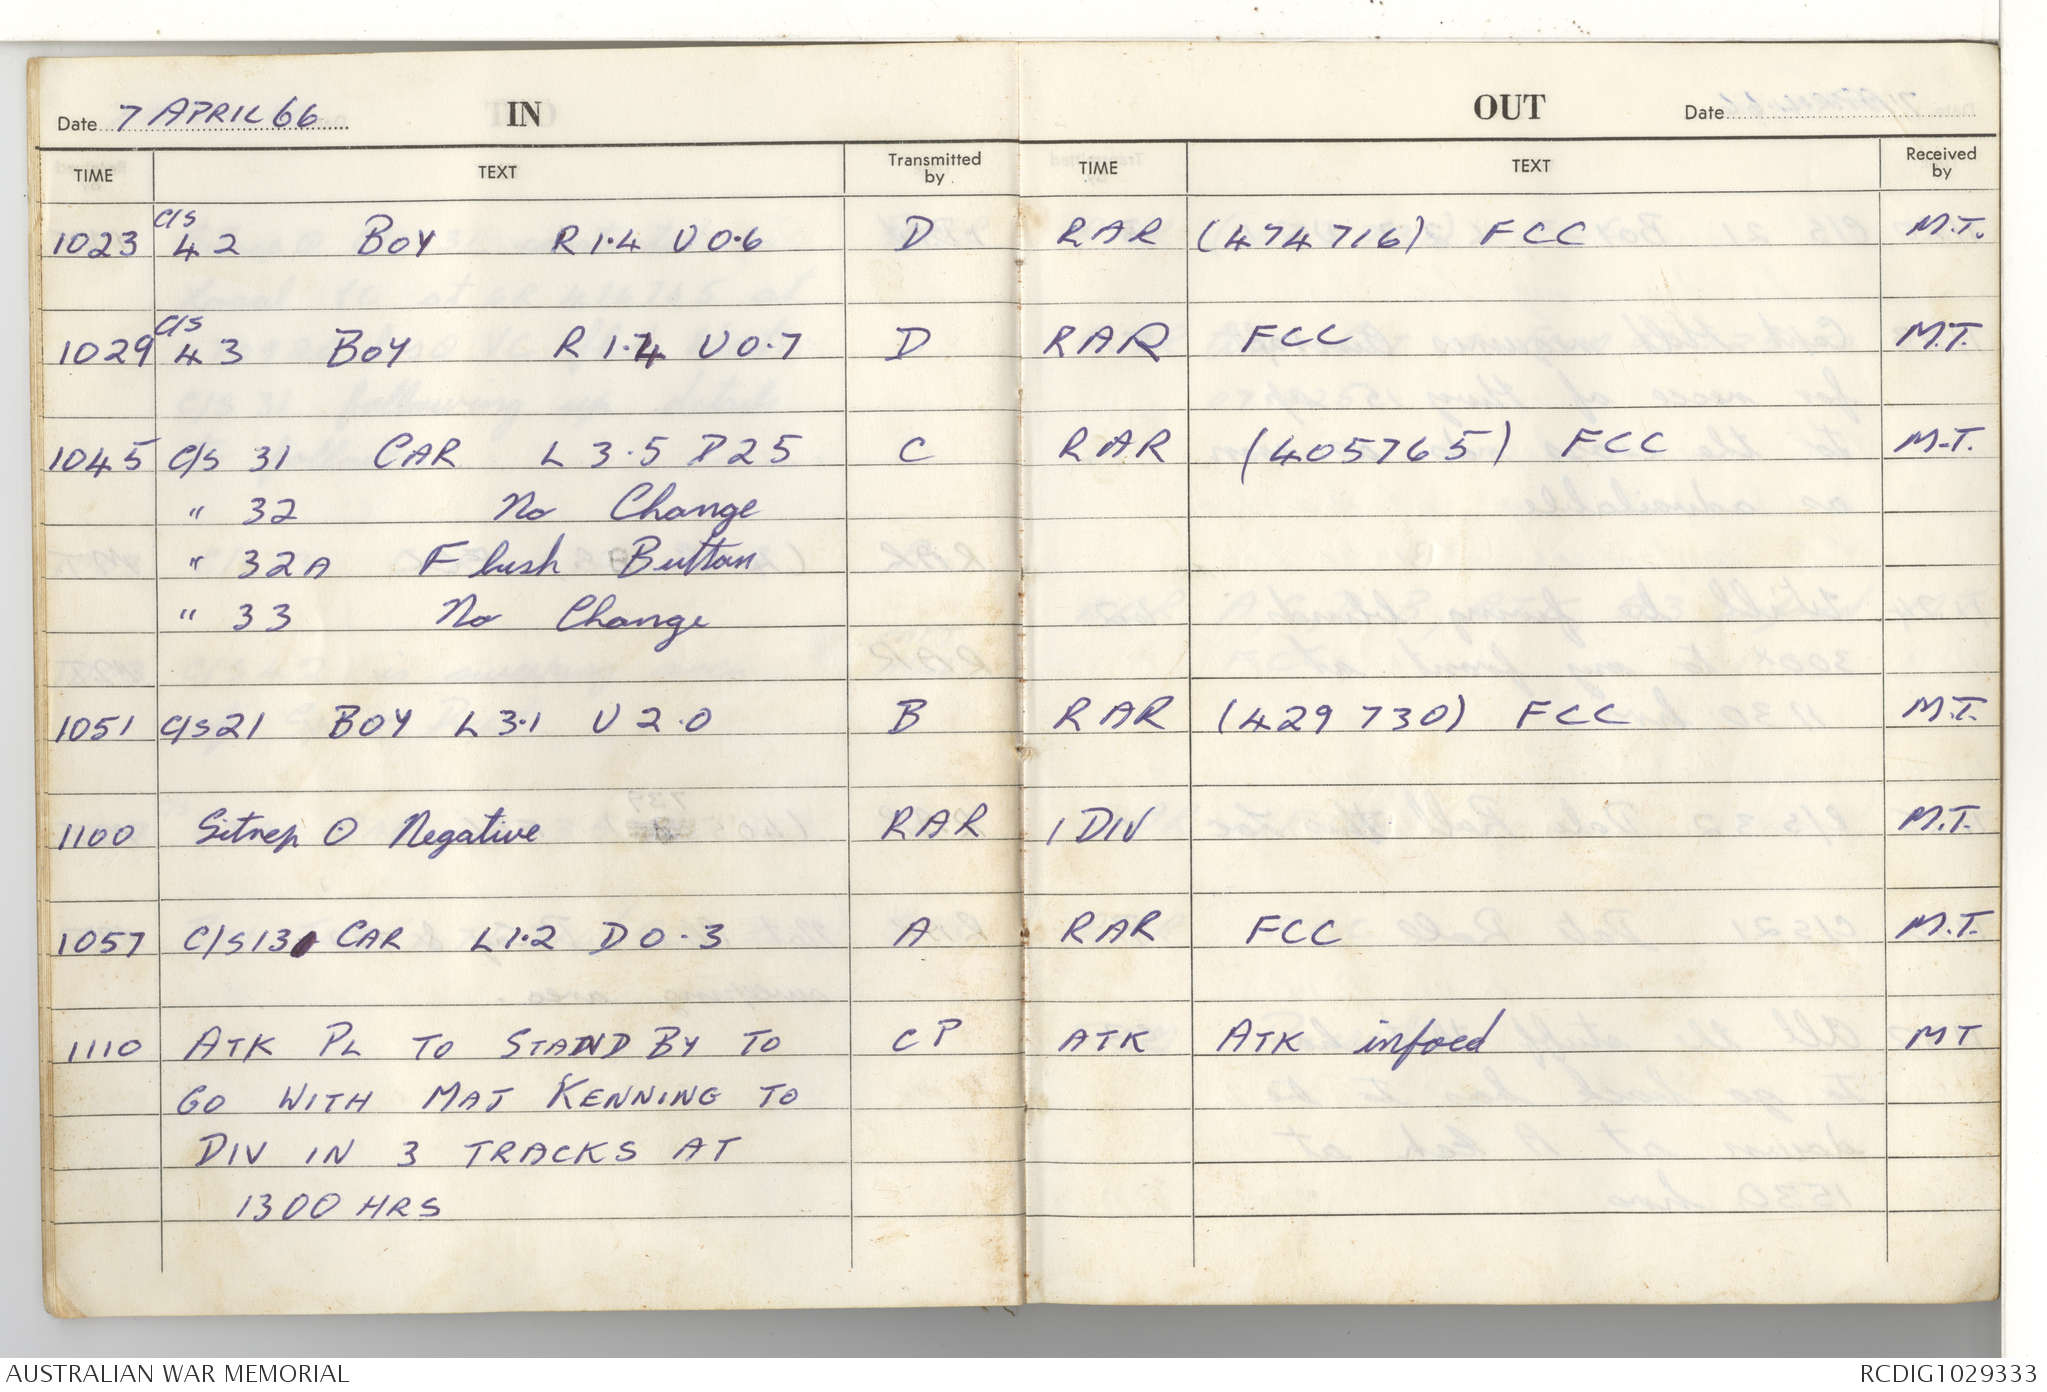 Date 7 APRIL 66 IN
TIME TEXT Transmitted by
OUT Date
TIME TEXT Received by
1023 C/S 42 BOY R1.4 U0.6 D RAR (474716) FCC M.T.
1029 C/S 43 BOY R1.4 U0.7 D RAR FCC M.T.
1045 C/S 31 CAR L 3.5 D25 C RAR (405765) FCC M.T.
" 32 No Change
" 32A Flush Button
" 33 No Change
1051 C/S21 BOY L3.1 U2.0 B RAR (429730) FCC M.T.
1100 Sitrep O Negative RAR 1 DIV M.T.
1057 C/S13 CAR L1.2 D0.3 A RAR FCC M.T.
1110 ATK PL TO STAND BY TO CP ATK ATK infoed MT
GO WITH MAJ KENNING TO
DIV IN 3 TRACKS AT
1300 HRS
AUSTRALIAN WAR MEMORIAL RCDIG1029333